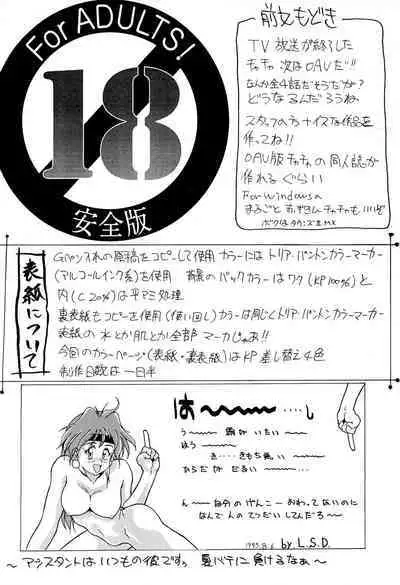 For ADULTS!
18
安全版
前文もどき
TV放送が終了した
チャチャ 次はOAVだ!!
なんか全4話だそうだが?
どうなるんだろうね
スタッフの方ナイスな作品を
作ってね!!
OAV版チャチャの同人誌が
作れるぐらい
For Windowsの
表紙について
Gペン入れの原稿をコピーして使用 カラーにはトリア・パントンカラーマーカー
(アルコールインク系)を使用 背景のバックカラーはワク(KP100%)と
内(C20%)は平アミ処理
裏表紙もコピーを使用(使い回し)カラーは同じくトリアパントンカラーマーカー
表紙の水とか肌とか全部マーカーじゃぁ!!
今回のカラーページ(表紙・裏表紙)はKP差し替え4色
制作日数は一日半
は〜〜〜....し
う〜〜 頭がいたい〜
はう〜
き....きもち悪い〜
からだがだるい〜...
ん〜 自分のげんこーおわってないのに
なんで人のてつだいしてんだろ〜
1995.8.6 by L.S.D.
〜アシスタントはいつもの彼です。夏バテに負けるなぁ〜